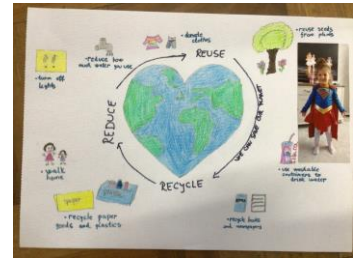 • reduce how
much water you use
• donate
clothes
REUSE
• reuse seeds
from plants
• turn off
lights
REDUCE
WE CAN SAVE OUR PLANET
• walk
home
RECYCLE
• use washable
containers to
drink water
paper
• recycle paper
goods and plastics
• recycle books
and newspapers